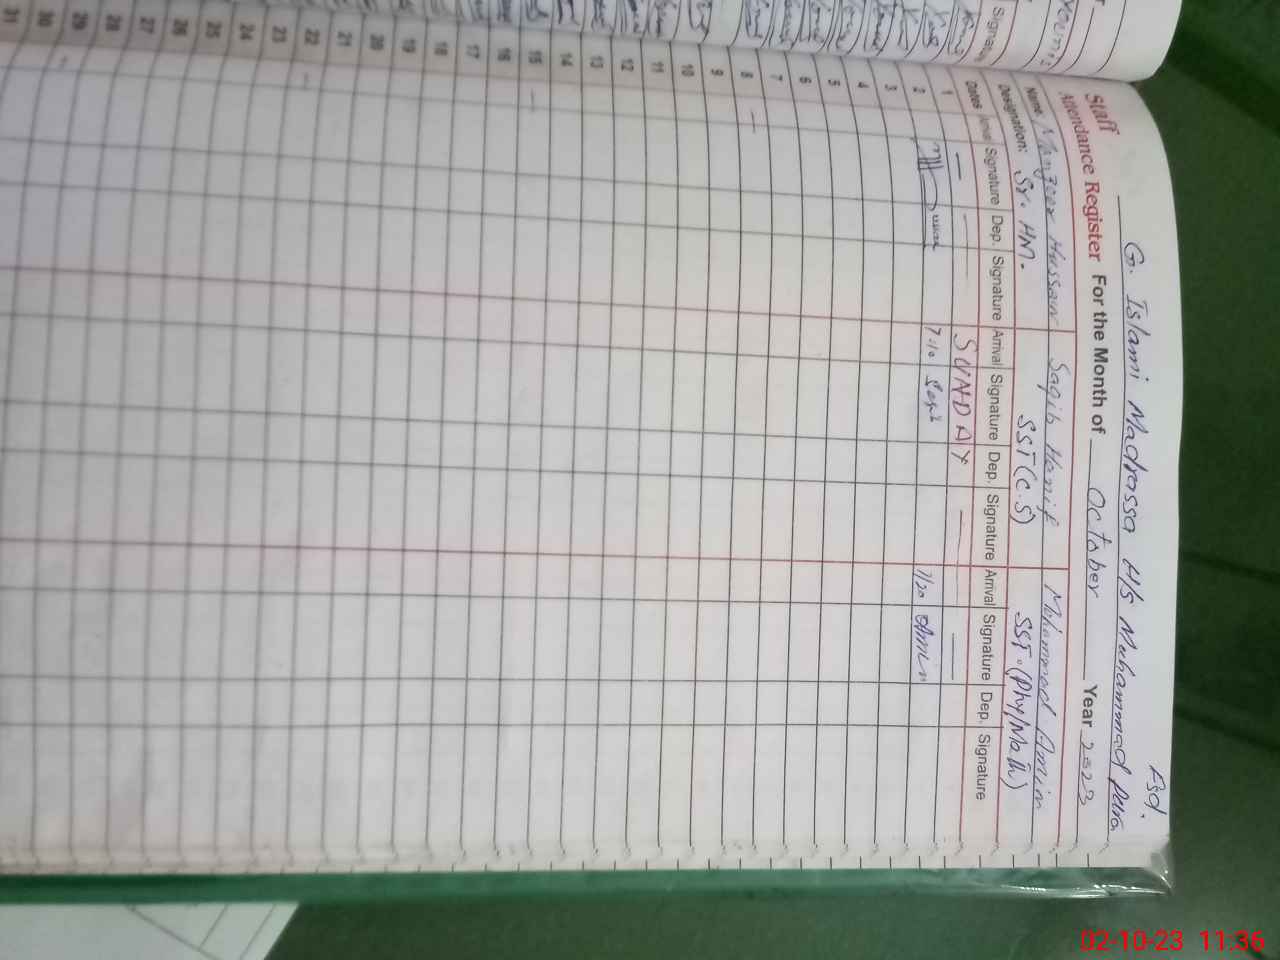 G. Islami Madrassa H/S Muhammad Pura, Fsd.
Staff
Attendance Register For the Month of October Year 2023
Name Manzoor Hussain Saqib Hanif Mohammad Amin
Designation: Sr. HM. SST (C.S) SST. (Phy/Math)
Dates Signature Dep. Signature Arrival Signature Dep. Signature Arrival Signature Dep. Signature
1 — SUNDAY —
2 7:10 Saqib 7/20 Amin
3
4
5
6
7
8 —
9
10
11
12
13
14
15 —
16
17
18
19
20
21
22 —
23
24
25
26
27
28
29 —
30
31
Signature
02-10-23 11:36